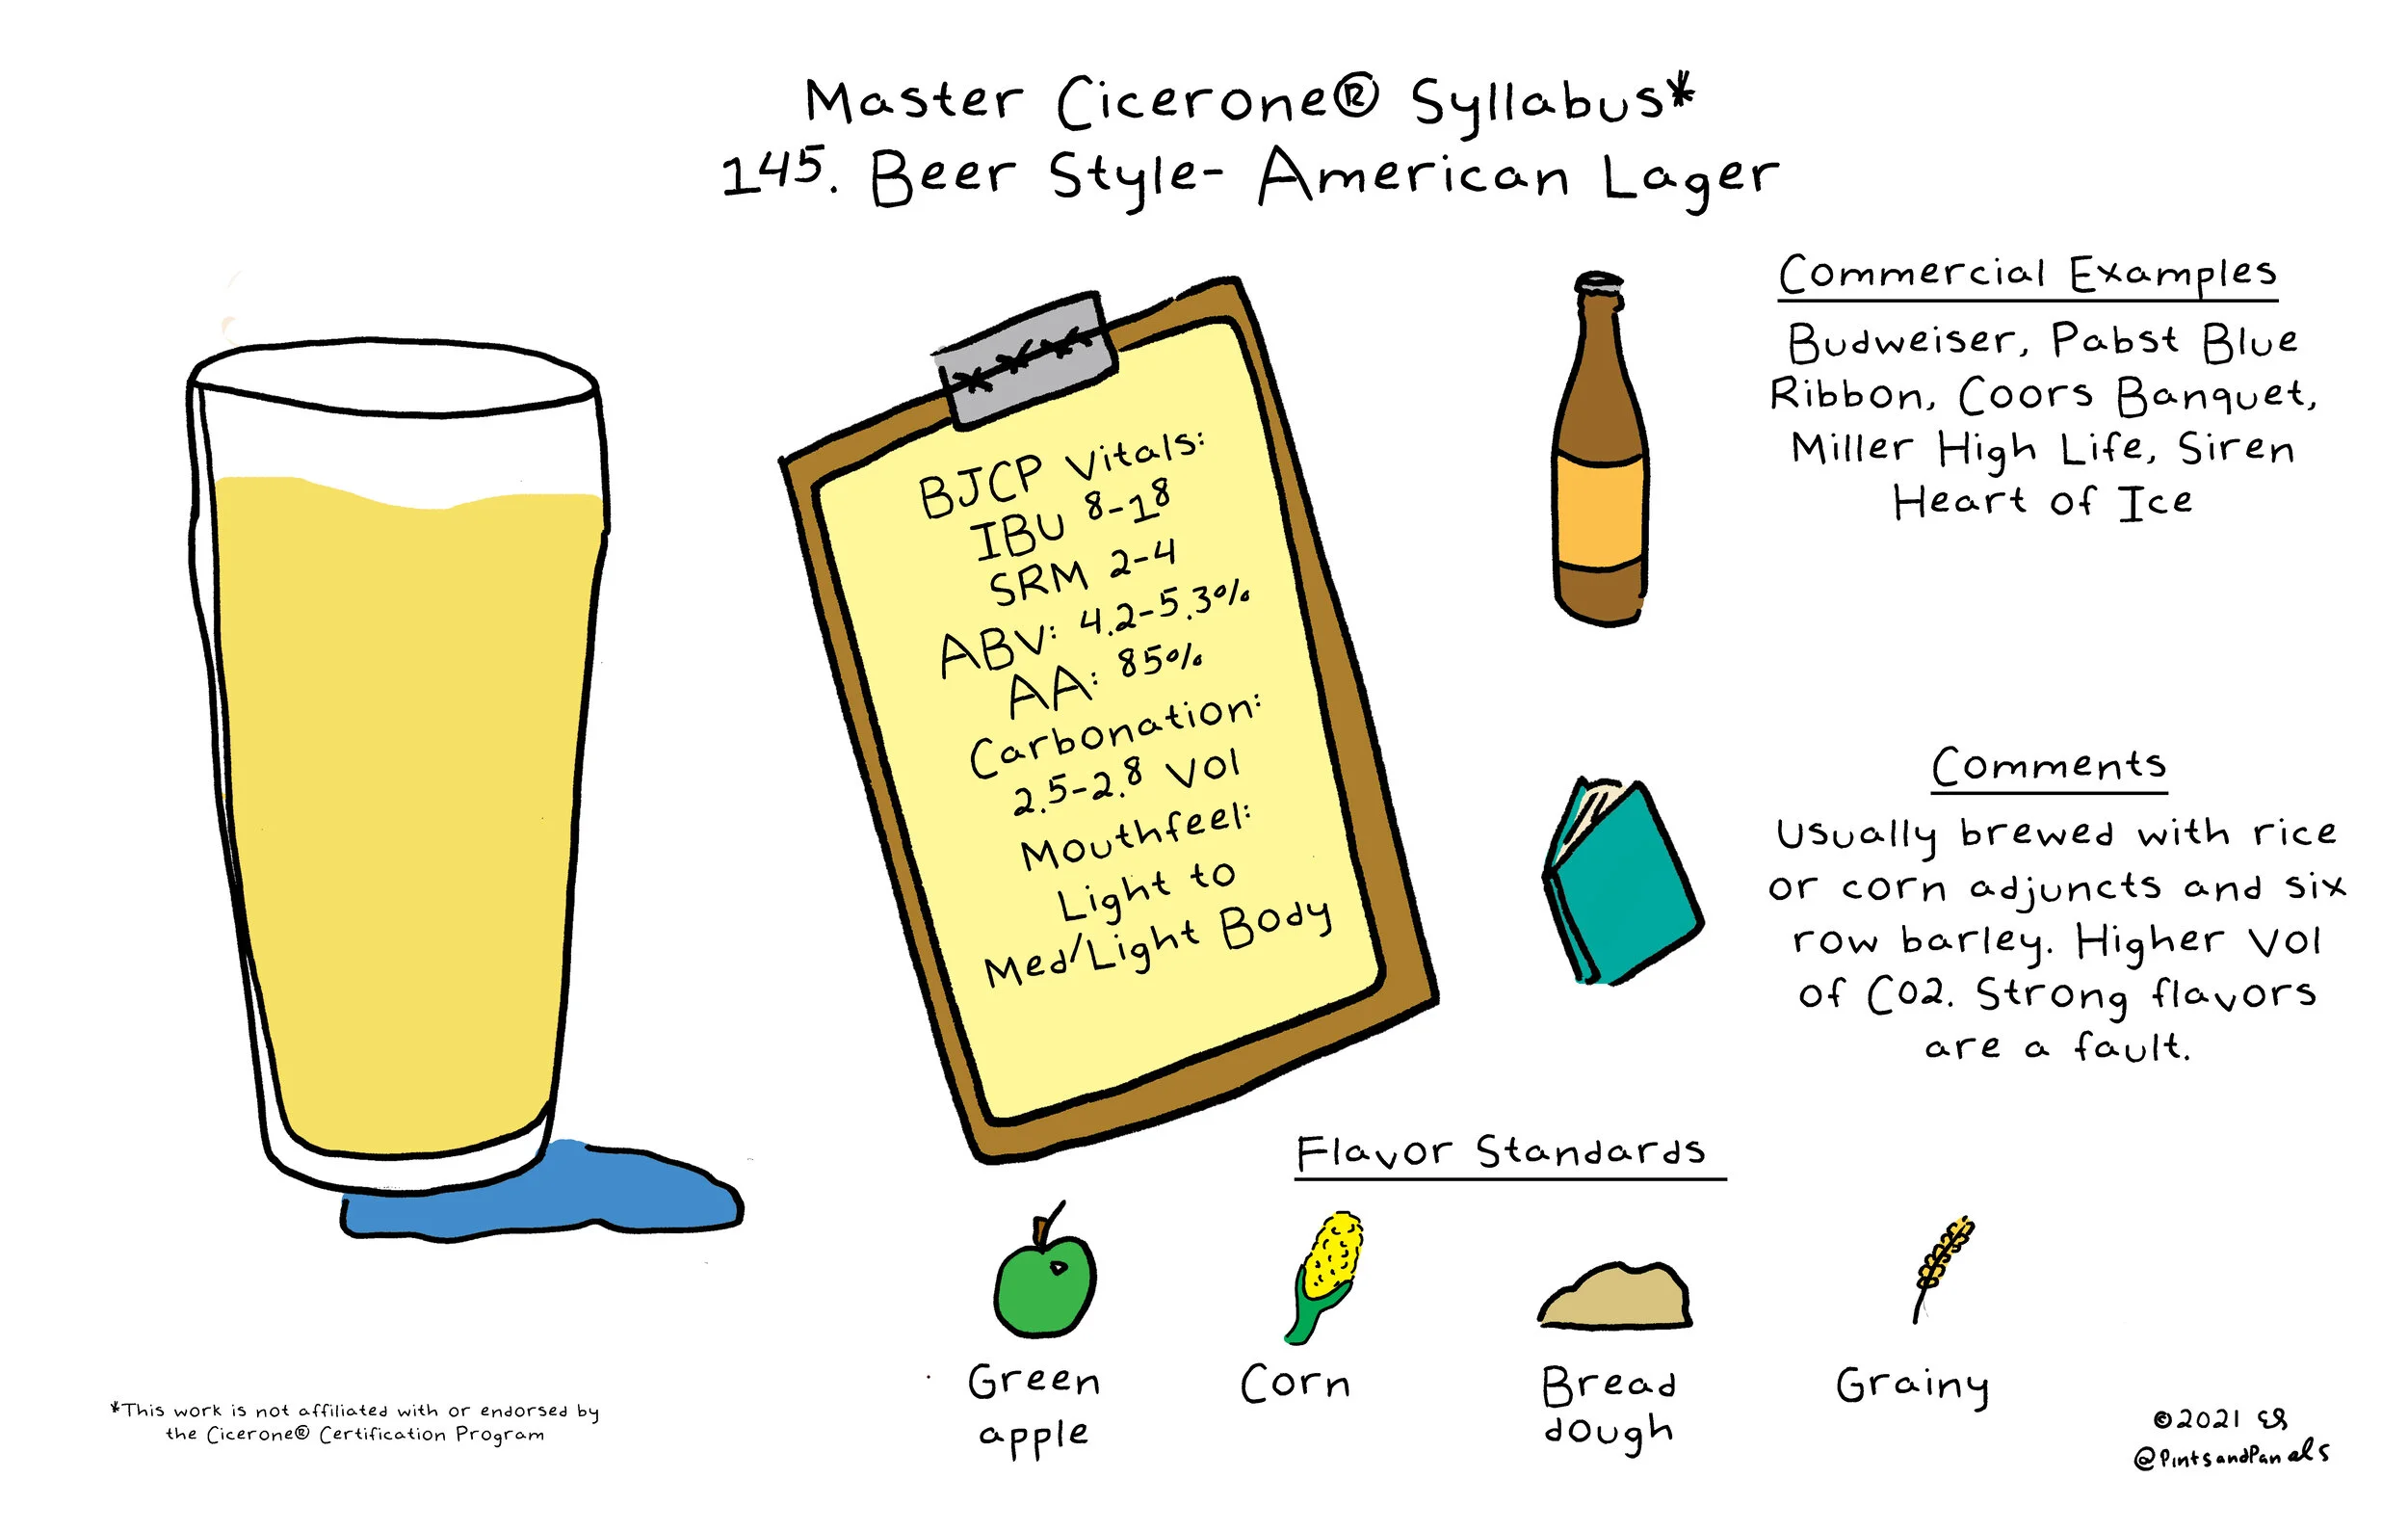 Master Cicerone® Syllabus*
145. Beer Style- American Lager
BJCP Vitals:
IBU 8-18
SRM 2-4
ABV: 4.2-5.3%
AA: 85%
Carbonation:
2.5-2.8 Vol
Mouthfeel:
Light to
Med/Light Body
Commercial Examples
Budweiser, Pabst Blue
Ribbon, Coors Banquet,
Miller High Life, Siren
Heart of Ice
Comments
Usually brewed with rice
or corn adjuncts and six
row barley. Higher Vol
of CO2. Strong flavors
are a fault.
Flavor Standards
Green
apple
Corn
Bread
dough
Grainy
*This work is not affiliated with or endorsed by
the Cicerone® Certification Program
©2021
@PintsandPanels